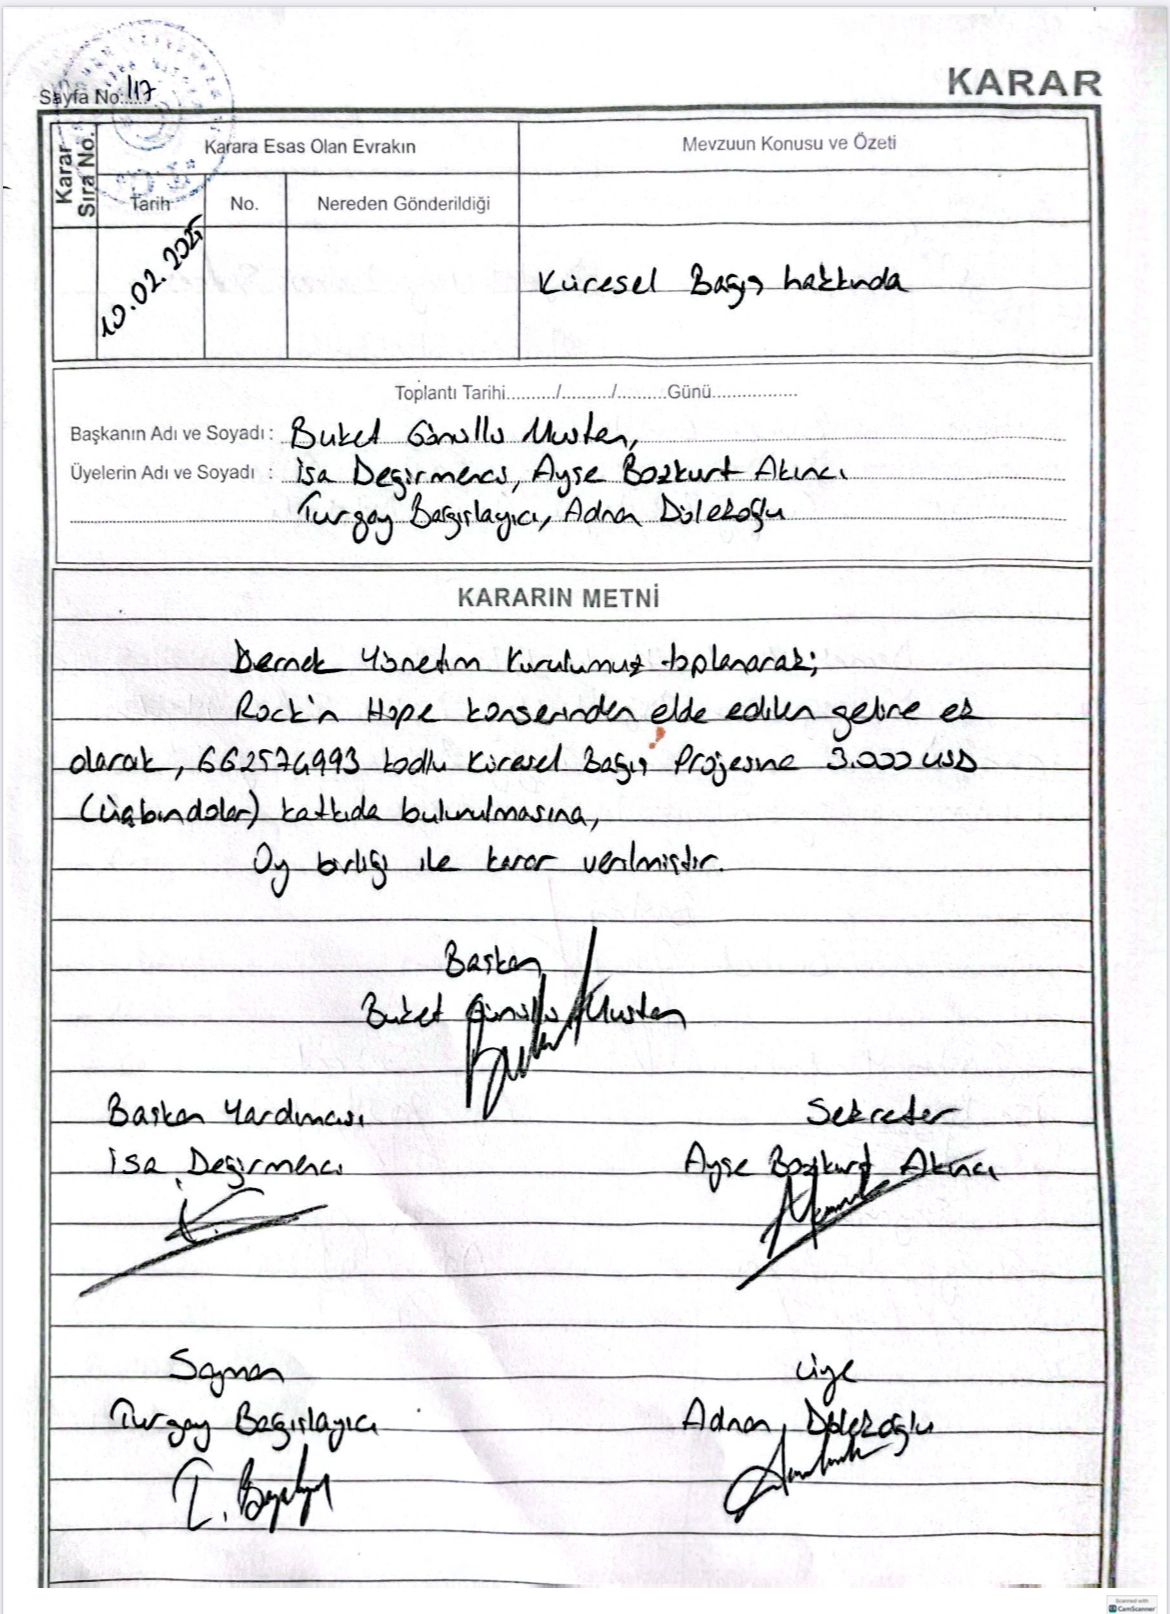 KARAR
Sayfa No:117
Karar Sıra No.
Karara Esas Olan Evrakın
Mevzuun Konusu ve Özeti
Tarih
No.
Nereden Gönderildiği
10.02.2025
Küresel Bağış hakkında
Toplantı Tarihi........../........../..........Günü.................
Başkanın Adı ve Soyadı : Buket Gönüllü Musten,
Üyelerin Adı ve Soyadı : İsa Değirmenci, Ayşe Bozkurt Akıncı
Turgay Bağışlayıcı, Adnan Dölekoğlu
KARARIN METNİ
Dernek Yönetim Kurulumuz toplanarak;
Rock'n Hope konserinden elde edilen gelire ek
olarak, 662574993 kodlu Küresel Bağış Projesine 3.000 USD
(üçbindolar) katkıda bulunulmasına,
Oy birliği ile karar verilmiştir.
Başkan
Buket Gönüllü Musten
Başkan Yardımcısı
Sekreter
İsa Değirmenci
Ayşe Bozkurt Akıncı
Sayman
Üye
Turgay Bağışlayıcı
Adnan Dölekoğlu
Scanned with
CamScanner